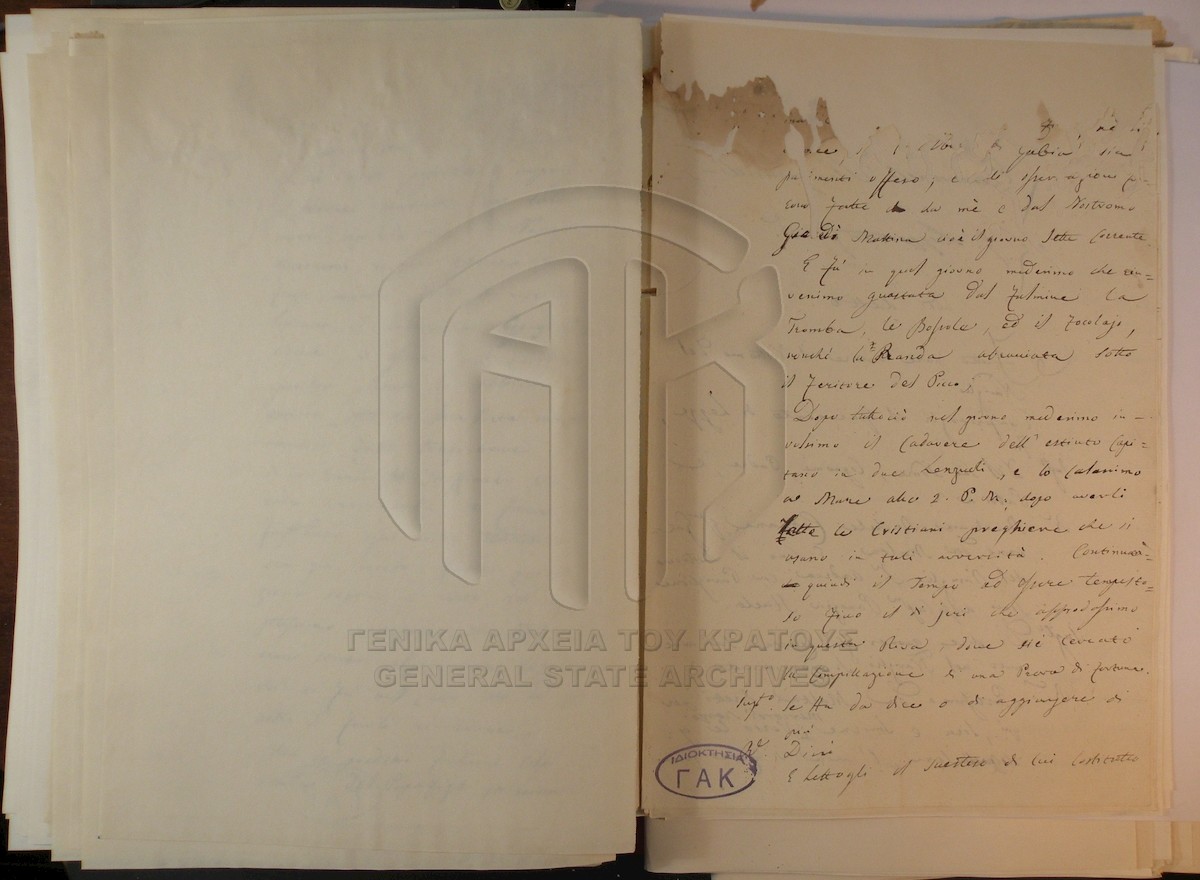 nè
Gabia sia
parimenti offeso; e di
fatte da mè e dal Nostromo
Mattina cioè il giorno Sette Corrente.
E fù in quel giorno medesimo che rin-
venimo guastata dal fulmine la
Tromba, le Bossole, ed il focolajo,
nonché la Randa abruciata sotto
il feritore del Picco.
Dopo tuttociò nel giorno medesimo in-
volsimo il Cadavere dell'estinto Capi-
tano in due Lenzuoli, e lo Calassimo
a Mare alle 2. P.M. dopo averli
fatte le Cristiani preghiere che si
usano in tali avversità. Continuò
quindi il Tempo ad essere tempesto-
so fino il dì jeri che approdossimo
in questa Riva, dove si è cercato
la Compillazione di una Prova di fortuna.
Se Ha da dire o di aggiungere di
più
Rd. Dissi
E Lettogli il Suesteso di lui Costituto
ΓΕΝΙΚΑ ΑΡΧΕΙΑ ΤΟΥ ΚΡΑΤΟΥΣ
GENERAL STATE ARCHIVES
ΙΔΙΟΚΤΗΣΙΑ
ΓΑΚ